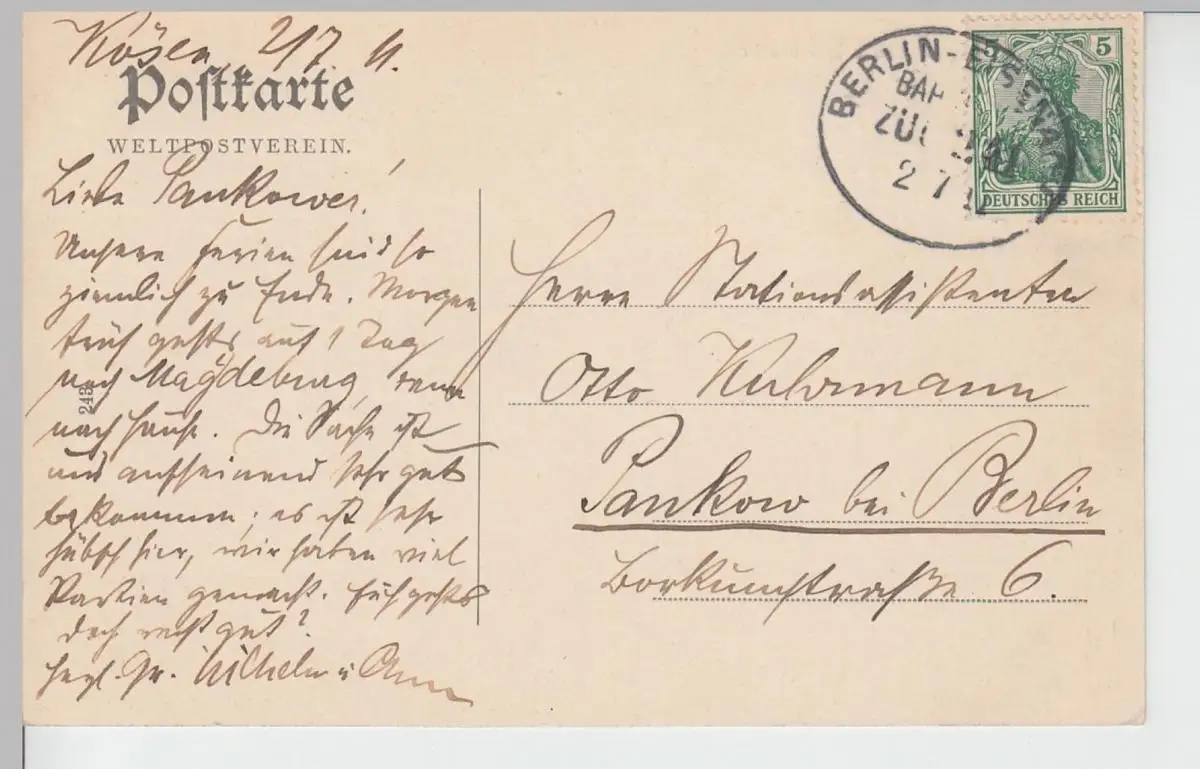 Kösen, 2/7 11.
Postkarte
WELTPOSTVEREIN.
Liebe Pankower!
Unsere Ferien sind so
ziemlich zu Ende. Morgen
früh gehts auf 1 Tag
nach Magdeburg, dann
nach Hause. Die Sache ist
uns anscheinend sehr gut
bekommen; es ist sehr
hübsch hier, wir haben viel
Partien gemacht. Euch gehts
doch recht gut?
Herzl. Gr. Wilhelm u
243
BERLIN-EISENACH
BAH
ZUG
2 7 11
5
DEUTSCHES REICH
Herrn Stationsassistenten
Otto Kuhrmann
Pankow bei Berlin
Borkumstraße 6.